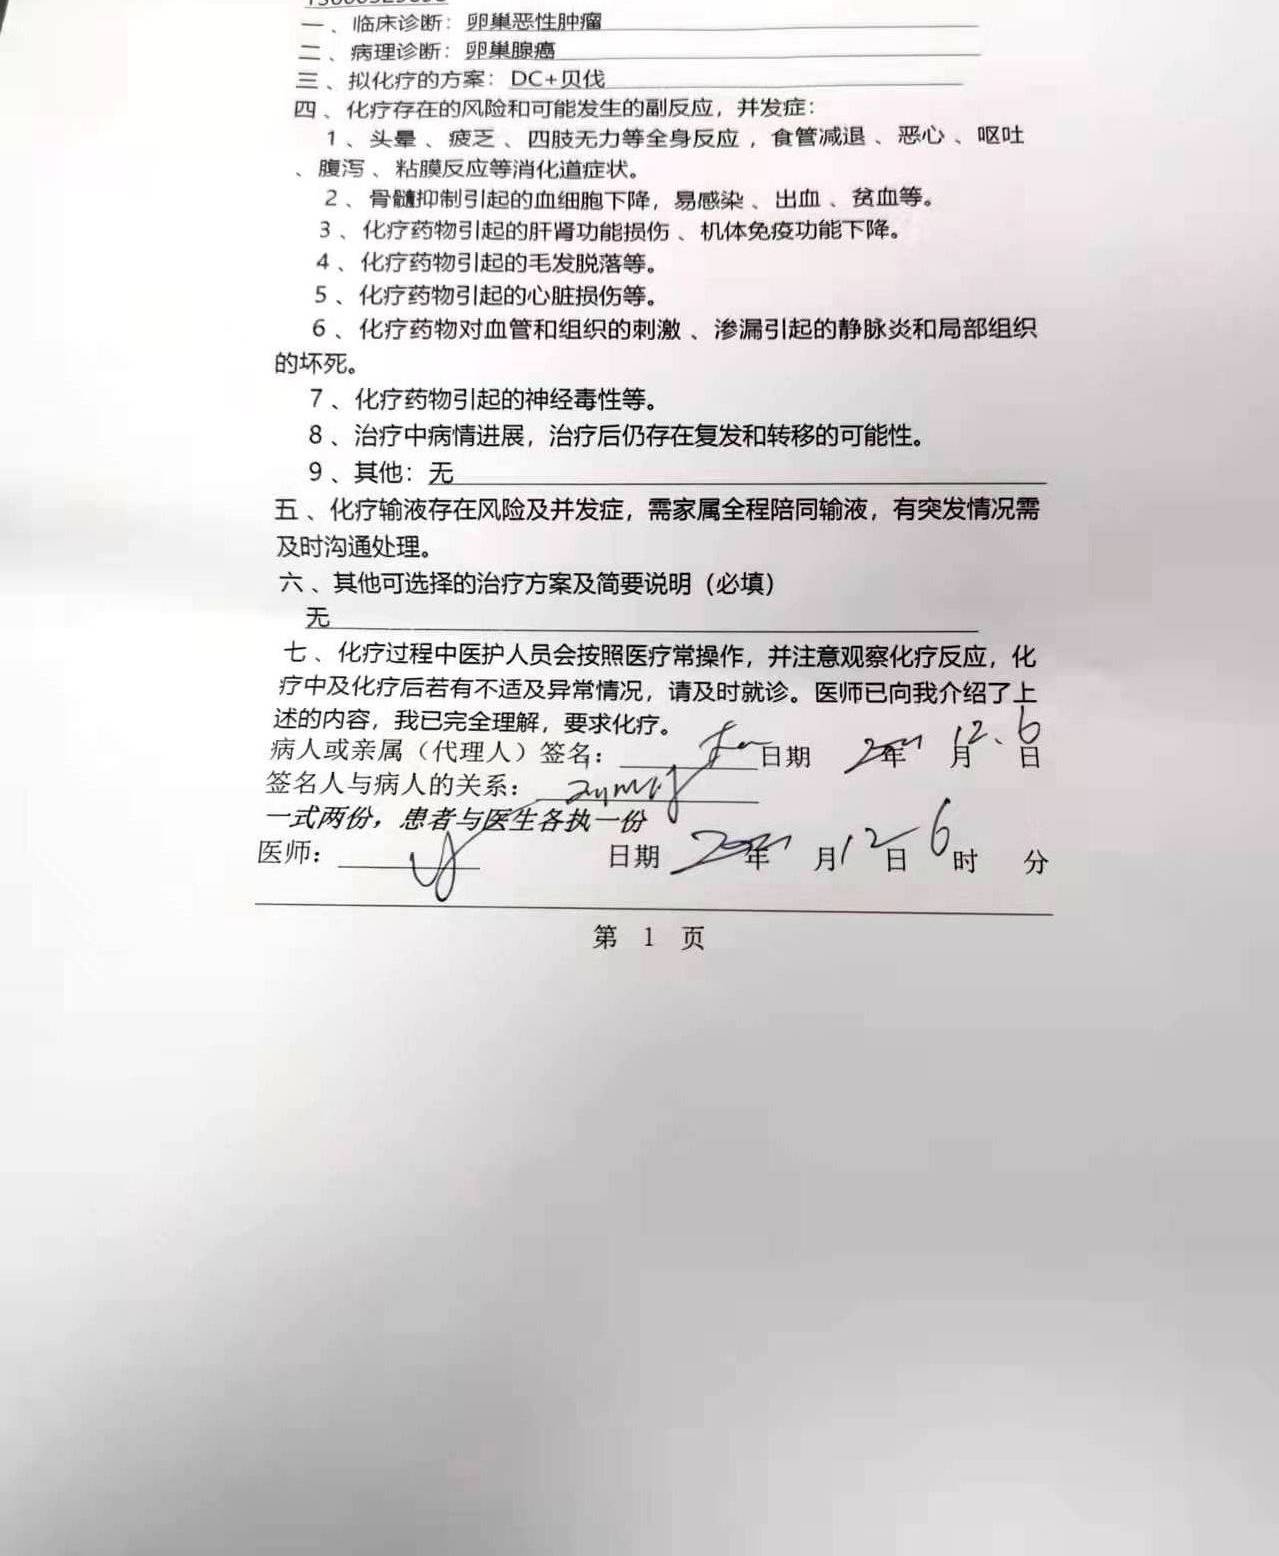 一、临床诊断：卵巢恶性肿瘤
二、病理诊断：卵巢腺癌
三、拟化疗的方案：DC+贝伐
四、化疗存在的风险和可能发生的副反应，并发症：
1、头晕、疲乏、四肢无力等全身反应，食管减退、恶心、呕吐
、腹泻、粘膜反应等消化道症状。
2、骨髓抑制引起的血细胞下降，易感染、出血、贫血等。
3、化疗药物引起的肝肾功能损伤、机体免疫功能下降。
4、化疗药物引起的毛发脱落等。
5、化疗药物引起的心脏损伤等。
6、化疗药物对血管和组织的刺激、渗漏引起的静脉炎和局部组织
的坏死。
7、化疗药物引起的神经毒性等。
8、治疗中病情进展，治疗后仍存在复发和转移的可能性。
9、其他：无
五、化疗输液存在风险及并发症，需家属全程陪同输液，有突发情况需
及时沟通处理。
六、其他可选择的治疗方案及简要说明（必填）
无
七、化疗过程中医护人员会按照医疗常操作，并注意观察化疗反应，化
疗中及化疗后若有不适及异常情况，请及时就诊。医师已向我介绍了上
述的内容，我已完全理解，要求化疗。
病人或亲属（代理人）签名： 日期 2021年 12月 6日
签名人与病人的关系：
一式两份，患者与医生各执一份
医师： 日期 2021年 月12日 6时 分
第 1 页